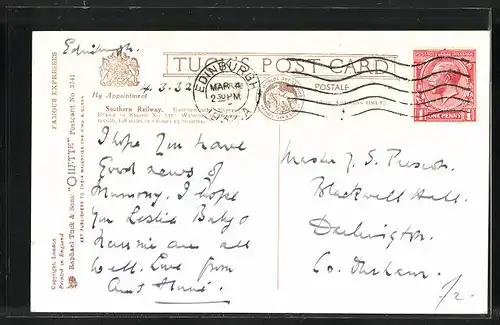 Edinburgh.
4.3.32
TUCK'S POST CARD
EDINBURGH
MAR
2 30 PM
POSTAGE REVENUE
ONE PENNY
By Appointment
POSTALE
Southern Railway.
FAMOUS EXPRESSES
Raphael Tuck & Sons' "OILETTE" Postcard No. 3541
ART PUBLISHERS TO THEIR MAJESTIES THE KING & QUEEN
Copyright. London
Printed in England
I hope you have
Good news of
Mummy. I hope
you Leslie Baby &
Nannie are all
well. Love from
Aunt
Master J. S. Preston.
Blackwell Hall.
Darlington.
Co. Durham.